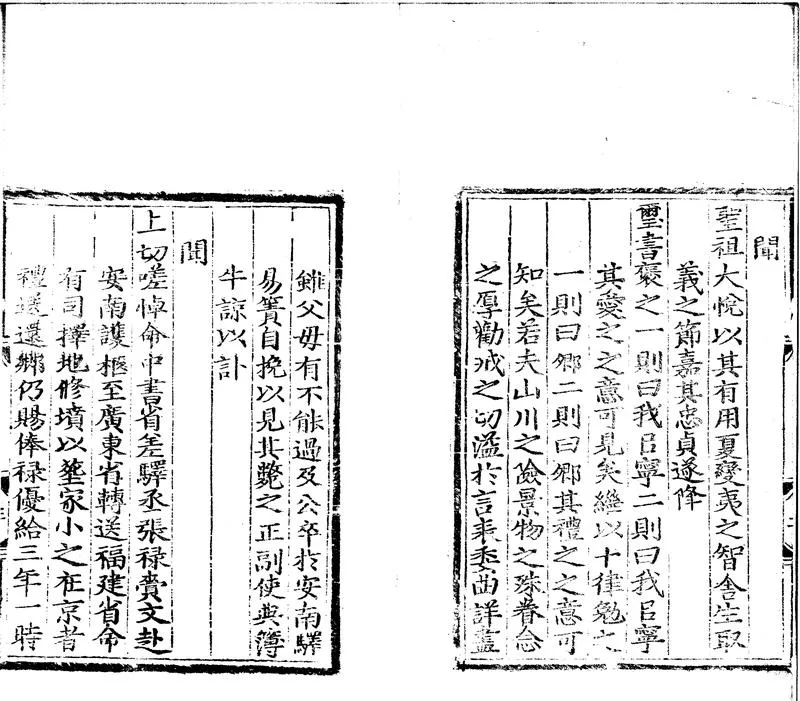 聞
聖祖大悅以其有用夏變夷之智舍生取
義之節嘉其忠貞遂降
璽書褒之一則曰我呂寧二則曰我呂寧
其愛之之意可見矣繼以十律勉之
一則曰鄉二則曰鄉其禮之之意可
知矣若夫山川之險景物之殊眷念
之厚勸戒之切溢於言表委曲詳盡
雖父母有不能過及公卒於安南驛
易簀自挽以見其斃之正副使典簿
牛諒以訃
聞
上切嗟悼命中書省差驛丞張祿賫文赴
安南護柩至廣東省轉送福建省命
有司擇地修墳以塟家小之在京者
禮送還鄉仍賜俸祿優給三年一時